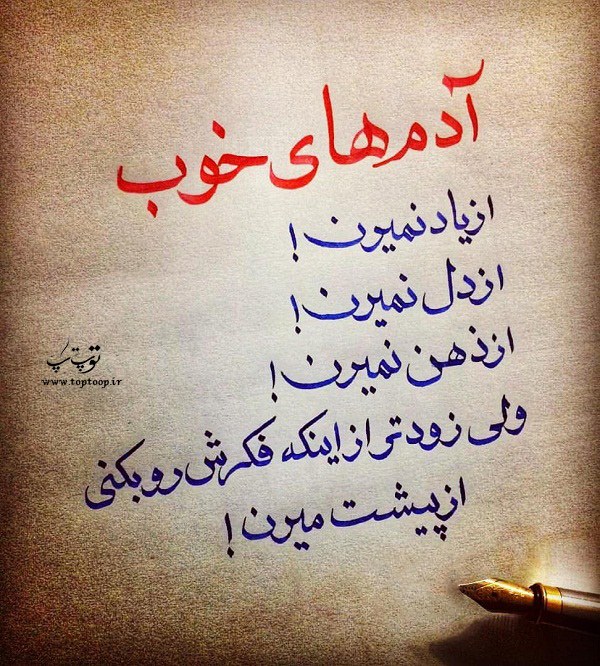 آدم‌های خوب
از یاد نمیرن!
از دل نمیرن!
از ذهن نمیرن!
ولی زودتر از اینکه فکرش رو بکنی
از پیشت میرن!
توپ تاپ
www.toptoop.ir